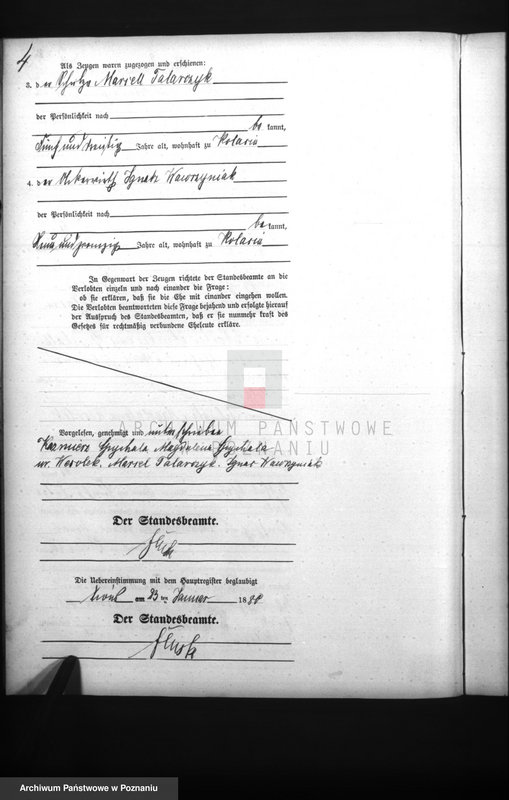 4
Als Zeugen waren zugezogen und erschienen:
3. der Schulze Marcell Tatarczyk
der Persönlichkeit nach
be kannt,
fünfunddreißig Jahre alt, wohnhaft zu Rolaria
4. der Ackerwirth Ignatz Wawrzyniak
der Persönlichkeit nach
be kannt,
neunundzwanzig Jahre alt, wohnhaft zu Rolaria
In Gegenwart der Zeugen richtete der Standesbeamte an die
Verlobten einzeln und nach einander die Frage:
ob sie erklären, daß sie die Ehe mit einander eingehen wollen.
Die Verlobten beantworteten diese Frage bejahend und erfolgte hierauf
der Ausspruch des Standesbeamten, daß er sie nunmehr kraft des
Gesetzes für rechtmäßig verbundene Eheleute erkläre.
ARCHIWUM PAŃSTWOWE
W POZNANIU
Vorgelesen, genehmigt und unterschrieben
Kazmierz Grychała Magdalena Grychała
ur. Marcel Tatarczyk. Ignac Wawrzyniak
Der Standesbeamte.
Die Uebereinstimmung mit dem Hauptregister beglaubigt
am 23 ten Januar 1880
Der Standesbeamte.
Archiwum Państwowe w Poznaniu